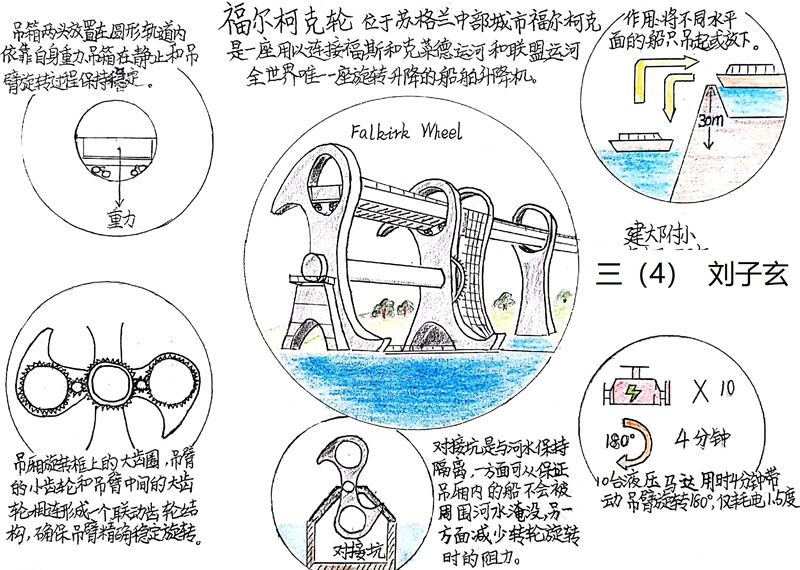 吊箱两头放置在圆形轨道内
依靠自身重力吊箱在静止和吊
臂旋转过程保持稳定。
重力
福尔柯克轮 位于苏格兰中部城市福尔柯克
是一座用以连接福斯和克莱德运河和联盟运河
全世界唯一一座旋转升降的船舶升降机。
Falkirk Wheel
作用:将不同水平
面的船只吊起或放下。
30m
建大附小
三（4） 刘子玄
吊厢旋转框上的大齿圈，吊臂
的小齿轮和吊臂中间的大齿
轮相连形成一个联动齿轮结
构，确保吊臂精确稳定旋转。
对接坑
对接坑是与河水保持
隔离，一方面可以保证
吊厢内的船不会被
周围河水淹没，另一
方面减少转轮旋转
时的阻力。
X 10
180° 4分钟
10台液压马达用时4分钟带
动吊臂旋转180°，仅耗电1.5度